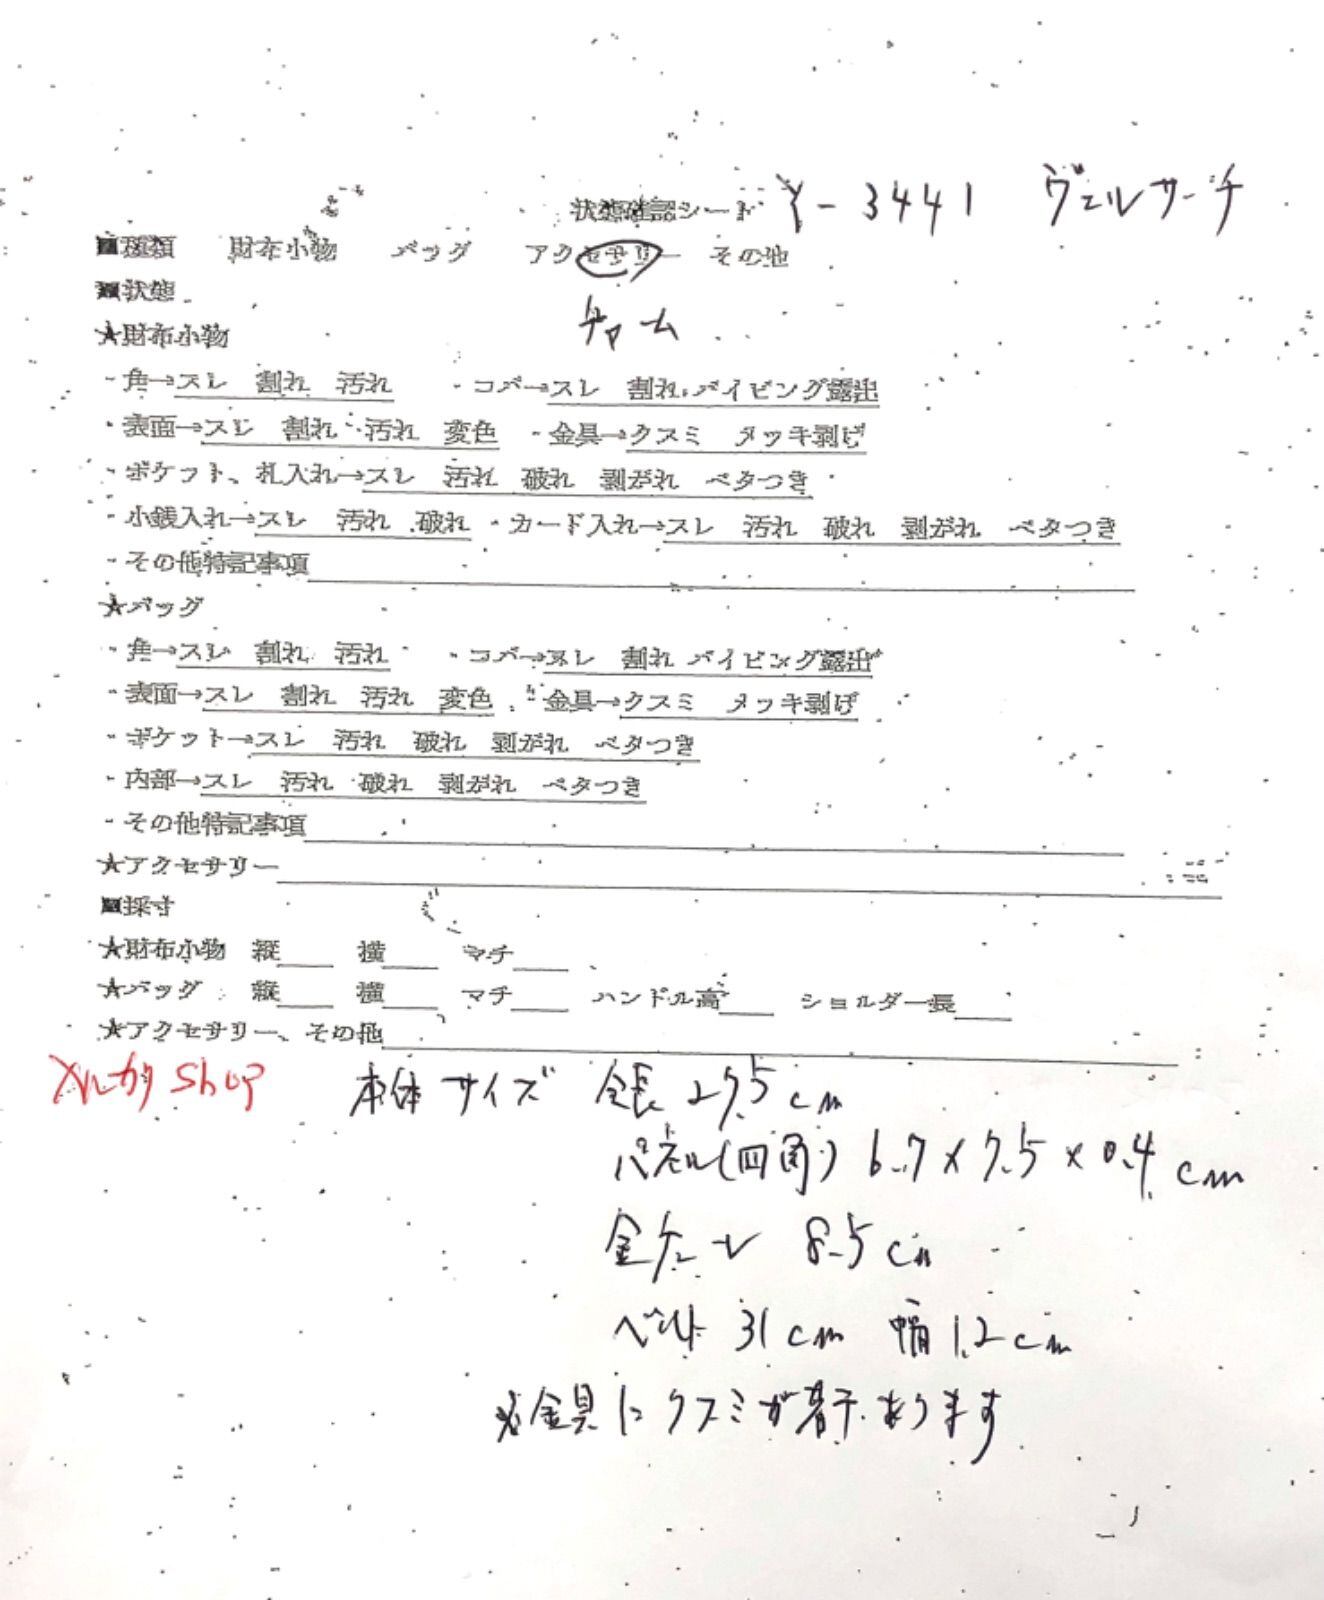 状態確認シート Y-3441 ヴェルサーチ
■種類 財布小物 バッグ アクセサリー その他
■状態 チャーム
★財布小物
・角→スレ 割れ 汚れ ・コバ→スレ 割れ パイピング露出
・表面→スレ 割れ 汚れ 変色 ・金具→クスミ メッキ剥げ
・ポケット、札入れ→スレ 汚れ 破れ 剥がれ ベタつき
・小銭入れ→スレ 汚れ 破れ ・カード入れ→スレ 汚れ 破れ 剥がれ ベタつき
・その他特記事項
★バッグ
・角→スレ 割れ 汚れ ・コバ→スレ 割れ パイピング露出
・表面→スレ 割れ 汚れ 変色 ・金具→クスミ メッキ剥げ
・ポケット→スレ 汚れ 破れ 剥がれ ベタつき
・内部→スレ 汚れ 破れ 剥がれ ベタつき
・その他特記事項
★アクセサリー
■採寸
★財布小物 縦 横 マチ
★バッグ 縦 横 マチ ハンドル高 ショルダー長
★アクセサリー、その他
メルカリ Shop 本体サイズ 全長 27.5cm
パネル(四角) 6.7×7.5×0.4cm
金チェーン 8.5cm
ベルト 31cm 幅1.2cm
※金具にクスミが若干あります